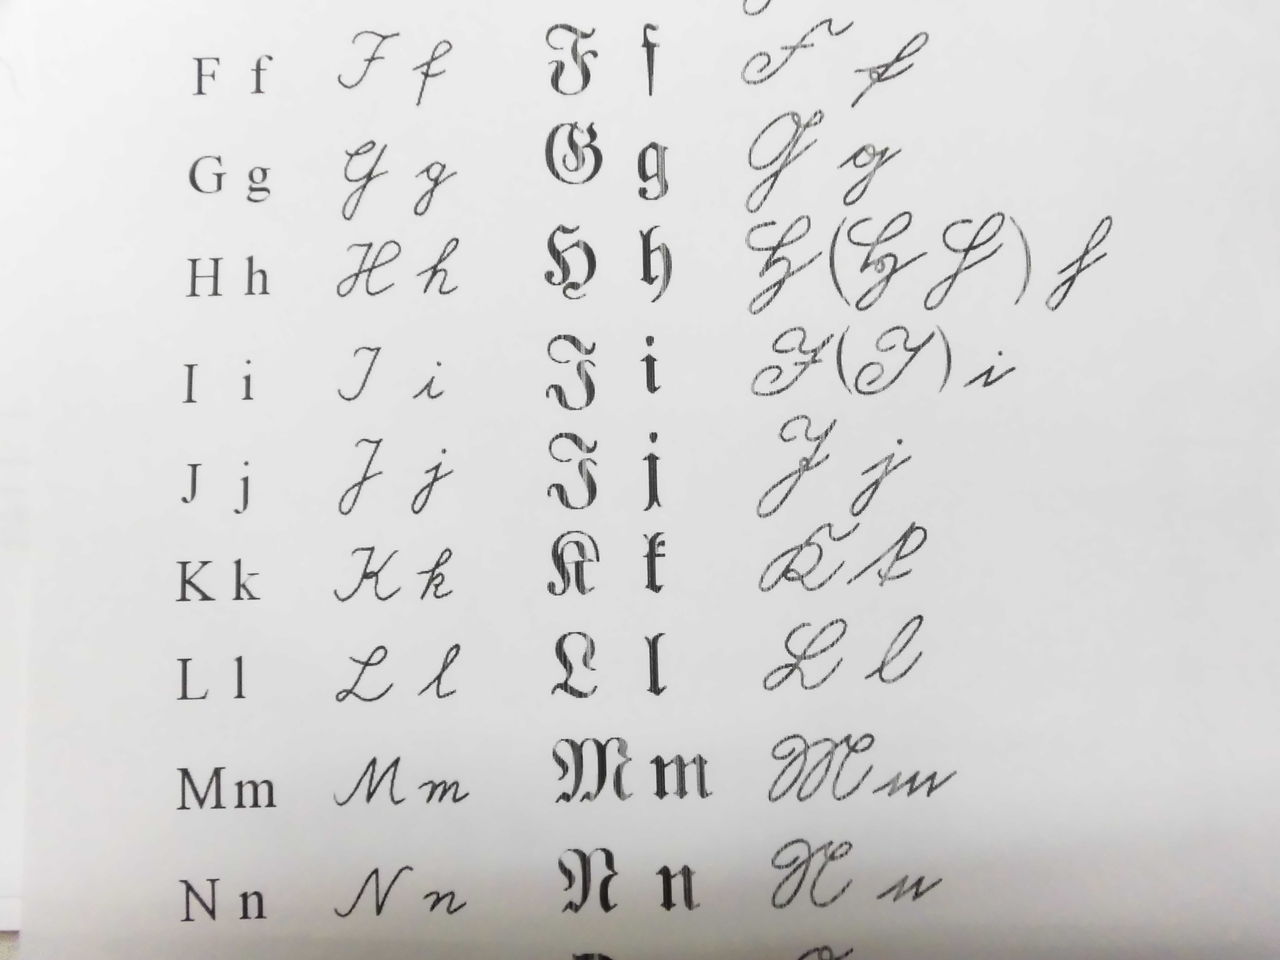 F f F f F f F f
G g G g G g G g
H h H h H h H (H H) h
I i I i I i I (I) i
J j J j J j J j
K k K k K k K k
L l L l L l L l
M m M m M m M m
N n N n N n N n